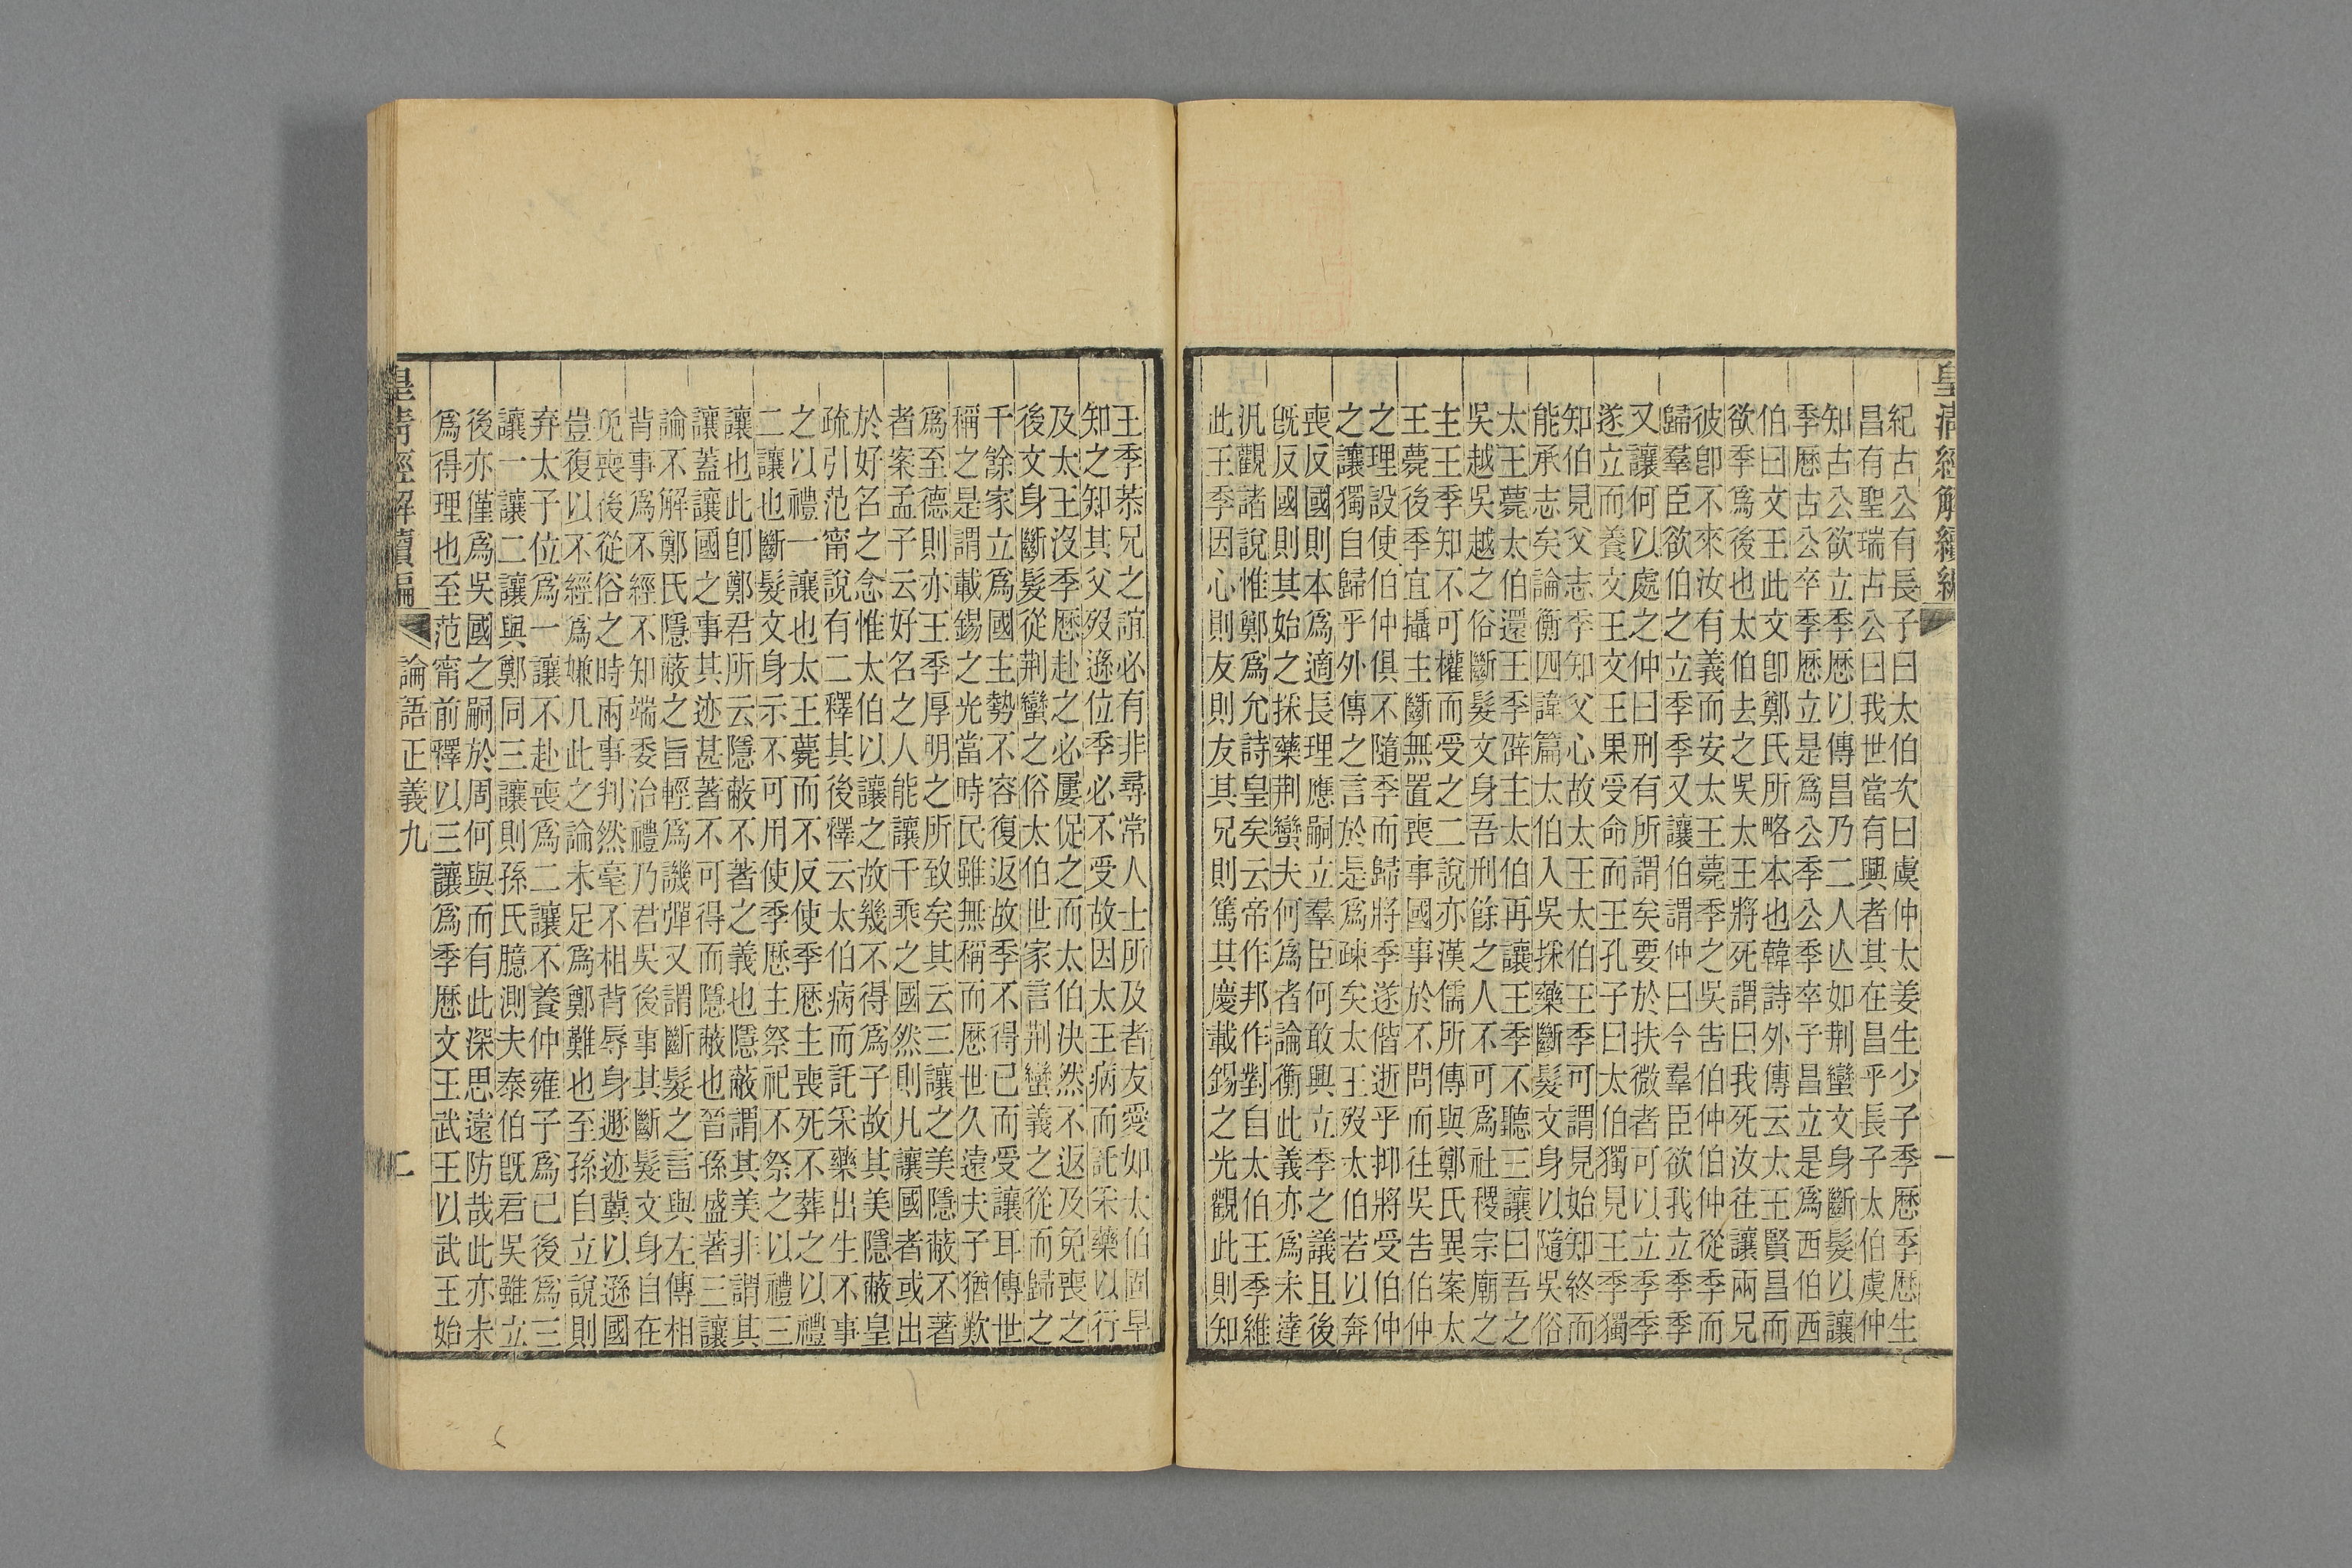 皇清經解續編 一
紀古公有長子曰太伯次曰虞仲太姜生少子季歷季歷生
昌有聖瑞古公曰我世當有興者其在昌乎長子太伯虞仲
知古公欲立季歷以傳昌乃二人亾如荆蠻文身斷髮以讓
季歷古公卒季歷立是爲公季公季卒子昌立是爲西伯西
伯曰文王此文卽鄭氏所略本也韓詩外傳云太王賢昌而
欲季爲後也太伯去之吳太王將死謂曰我死汝往讓兩兄
彼卽不來汝有義而安太王薨季之吳告伯仲伯仲從季而
歸羣臣欲伯之立季季又讓伯謂仲曰今羣臣欲我立季季
又讓何以處之仲曰刑有所謂矣要於扶微者可以立季季
遂立而養文王文王果受命而王孔子曰太伯獨見王季獨
知伯見父志季知父心故太王太伯王季可謂見始知終而
能承志矣論衡四諱篇太伯入吳採藥斷髮文身以隨吳俗
太王薨太伯還王季辟主太伯再讓王季不聽三讓曰吾之
吳越吳越之俗斷髮文身吾刑餘之人不可爲社稷宗廟之
主王季知不可權而受之二說亦漢儒所傳與鄭氏異案太
王薨後季宜攝主斷無置喪事國事於不問而往吳告伯仲
之理設使伯仲俱不隨季而歸將季遂偕逝乎抑將受伯仲
之讓獨自歸乎外傳之言於是爲疎矣太王歿太伯若以奔
喪反國則本爲適長理應嗣立羣臣何敢興立季之議且後
旣反國則其始之採藥荆蠻夫何爲者論衡此義亦爲未達
汎觀諸說惟鄭爲允詩皇矣云帝作邦作對自太伯王季維
此王季因心則友則友其兄則篤其慶載錫之光觀此則知
王季恭兄之誼必有非尋常人士所及者友愛如太伯固早
知之知其父歿遜位季必不受故因太王病而託采藥以行
及太王沒季歷赴之必屢促之而太伯決然不返及免喪之
後文身斷髮從荆蠻之俗太伯世家言荆蠻義之從而歸之
千餘家立爲國主勢不容復返故季不得已而受讓耳傳世
稱之是謂載錫之光當時民雖無稱而歷世久遠夫子猶歎
爲至德則亦王季厚明之所致矣其云三讓之美隱蔽不著
者案孟子云好名之人能讓千乘之國然則凡讓國者或出
於好名之念惟太伯以讓之故幾不得爲子故其美隱蔽皇
疏引范甯說有二釋其後釋云太伯病而託采藥出生不事
之以禮一讓也太王薨而不反使季歷主喪死不葬之以禮
二讓也斷髮文身示不可用使季歷主祭祀不祭之以禮三
讓也此卽鄭君所云隱蔽不著之義也隱蔽謂其美非謂其
讓蓋讓國之事其迹甚著不可得而隱蔽也晉孫盛著三讓
論不解鄭氏隱蔽之旨輕爲譏彈又謂斷髮之言與左傳相
背事爲不經不知端委治禮乃君吳後事其斷髮文身自在
免喪後從俗之時兩事判然毫不相背辱身遯迹冀以遜國
豈復以不經爲嫌几此之論未足爲鄭難也至孫自立說則
弃太子位爲一讓不赴喪爲二讓不養仲雍子爲己後爲三
讓一讓二讓與鄭同三讓則孫氏臆測夫泰伯旣君吳雖立
後亦僅爲吳國之嗣於周何與而有此深思遠防哉此亦未
爲得理也至范甯前釋以三讓爲季歷文王武王以武王始
皇清經解續編 論語正義九 二